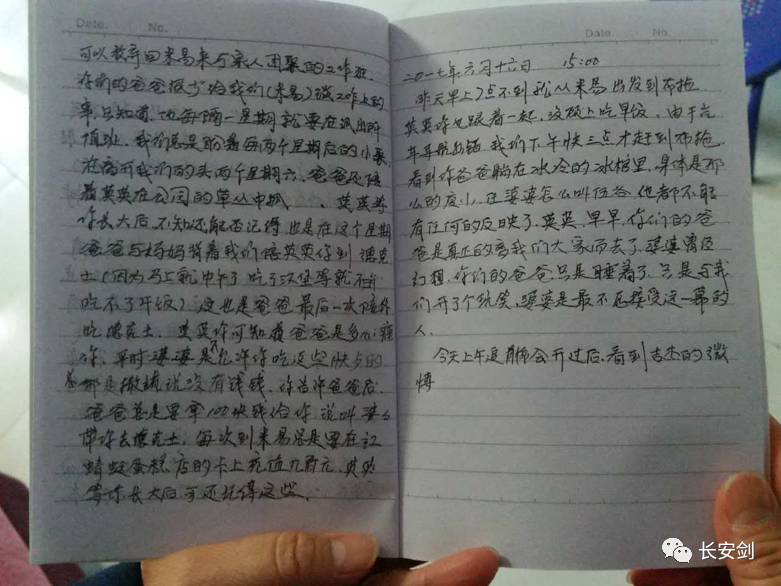 Date. No.
可以教育回米易来与亲人团聚的工作班
你们的爸爸很少给我们(米易)谈工作上的
事,只知道,他每隔一星期就要在派出所
值班。我们总是盼着每两个星期后的小聚
在离开我们的头两个星期六、爸爸还陪
着英英在公园的草丛中抓 、英英等
你长大后,不知还能否记得,也是在这个星期
爸爸与妈妈背着我们陪英英你到德克
士(因为马上就中午了吃了汉堡等就不
吃不了午饭)这也是爸爸最后一次陪你
吃德克士。英英你可知道爸爸是多么疼
你,平时婆婆是不允许你吃这些快歺的
总都是撒谎说没有钱钱。你告诉爸爸后,
爸爸总是要拿100块钱给你,说叫婆么
带你去德克士,每次到米易总是要在红
蜻蜓蛋糕店的卡上充值几百元,英英
等你长大后可还记得这些。
Date. No.
二〇一七年六月十六日 15:00
昨天早上7点不到我从米易出发到布拖,
英英你也跟着一起,没顾上吃早饭,由于汽
车导航出错,我们下午快三点才赶到布拖
看到你爸爸躺在冰冷的冰棺里,身体是那
么的瘦小,任婆婆怎么叫任爸,他都不能
有任何的反映了,英英,早早,你们的爸
爸是真正的离我们大家而去了,婆婆曾经
幻想,你们的爸爸只是睡着了,只是与我
们开了个玩笑,婆婆是最不愿接受这一幕的
人。
今天上午追肖会开过后,看到吉杰的微
博
长安剑